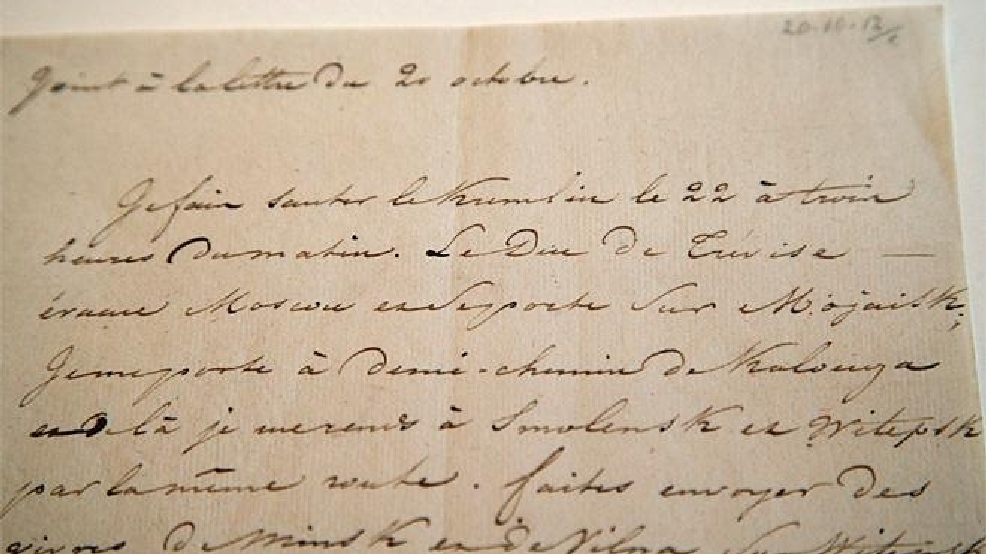 20-10-12
Joint à la lettre du 20 octobre.
Je fais sauter le Kremlin le 22 à trois
heures du matin. Le Duc de Trévise —
évacue Moscou et se porte sur Mojaisk;
Je me porte à demi-chemin de Kalouga
et de là je me rends à Smolensk et Witepsk
par la même route. faites envoyer des
vivres de Minsk et de Vilna sur Witepsk